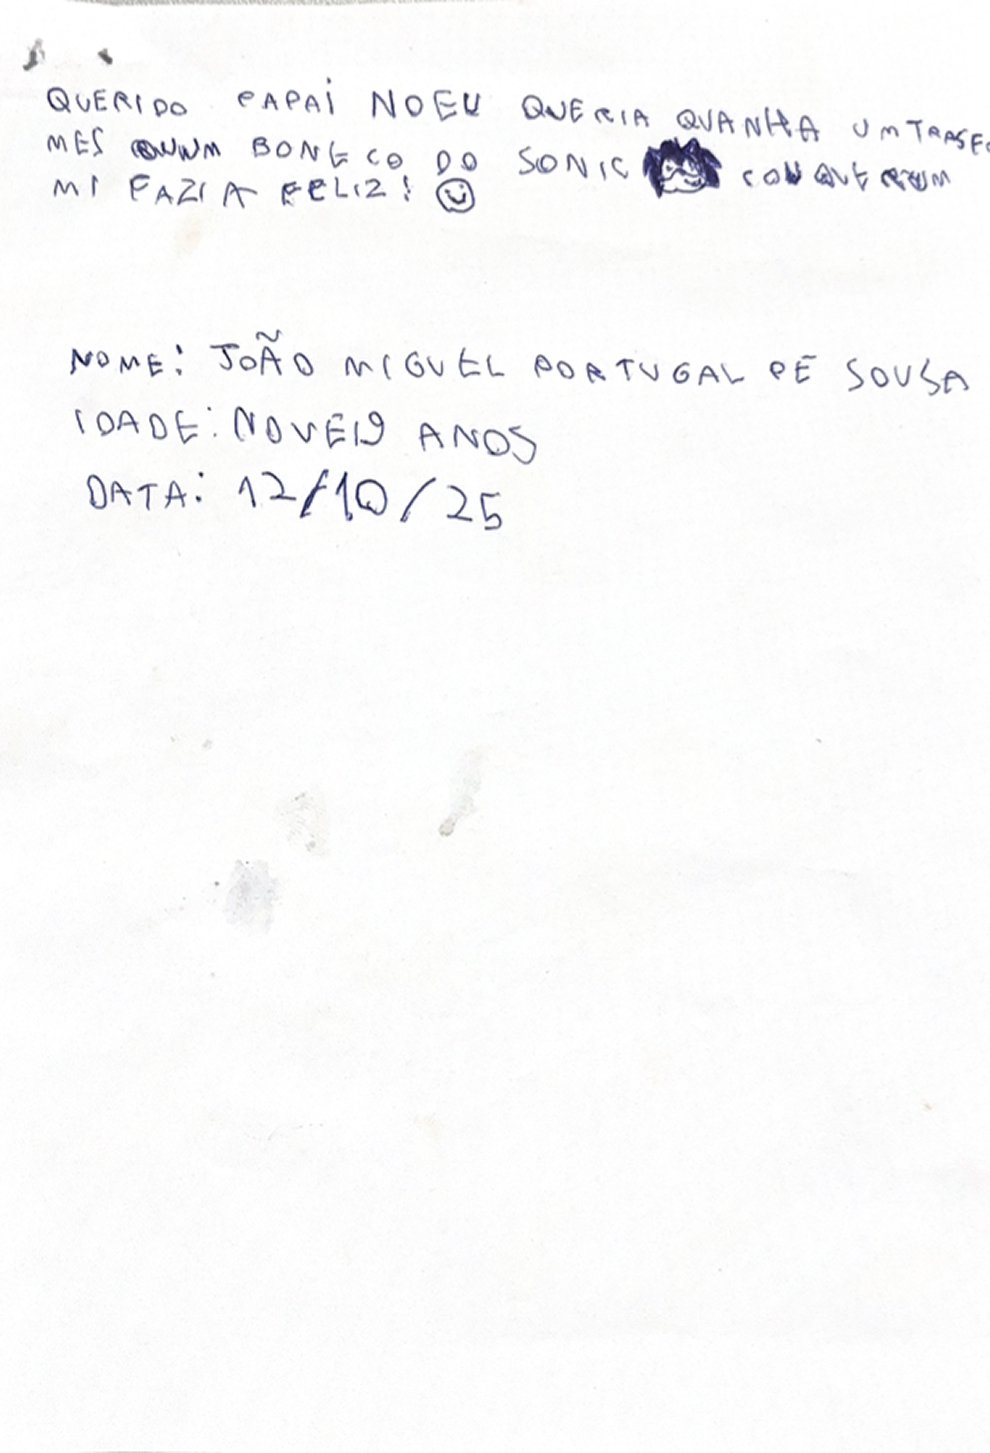 QUERIDO PAPAI NOEU QUERIA QUANHA UM TRASFO
MES OUUM BONECO DO SONIC COU QUE RUM
MI FAZIA FELIZ!
NOME: JOÃO MIGUEL PORTUGAL DE SOUSA
IDADE: NOVE 19 ANOS
DATA: 12/10/25